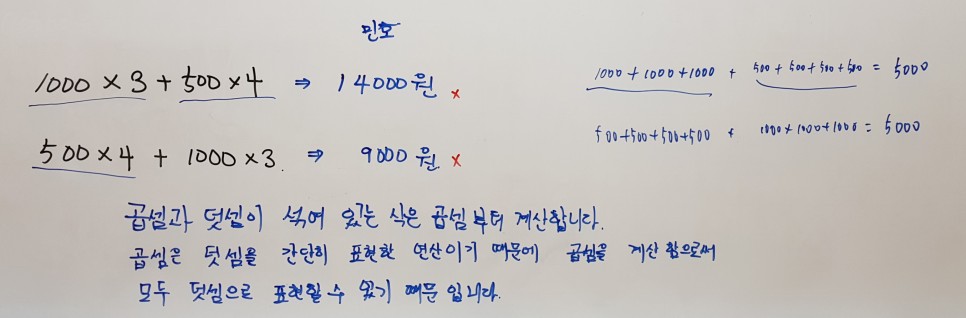 민호
1000 × 3 + 500 × 4 ⇒ 14000원 ×
1000 + 1000 + 1000 + 500 + 500 + 500 + 500 = 5000
500 × 4 + 1000 × 3. ⇒ 9000원 ×
500+500+500+500 + 1000+1000+1000 = 5000
곱셈과 덧셈이 섞여 있는 식은 곱셈부터 계산합니다.
곱셈은 덧셈을 간단히 표현한 연산이기 때문에 곱셈을 계산함으로써
모두 덧셈으로 표현할 수 있기 때문입니다.